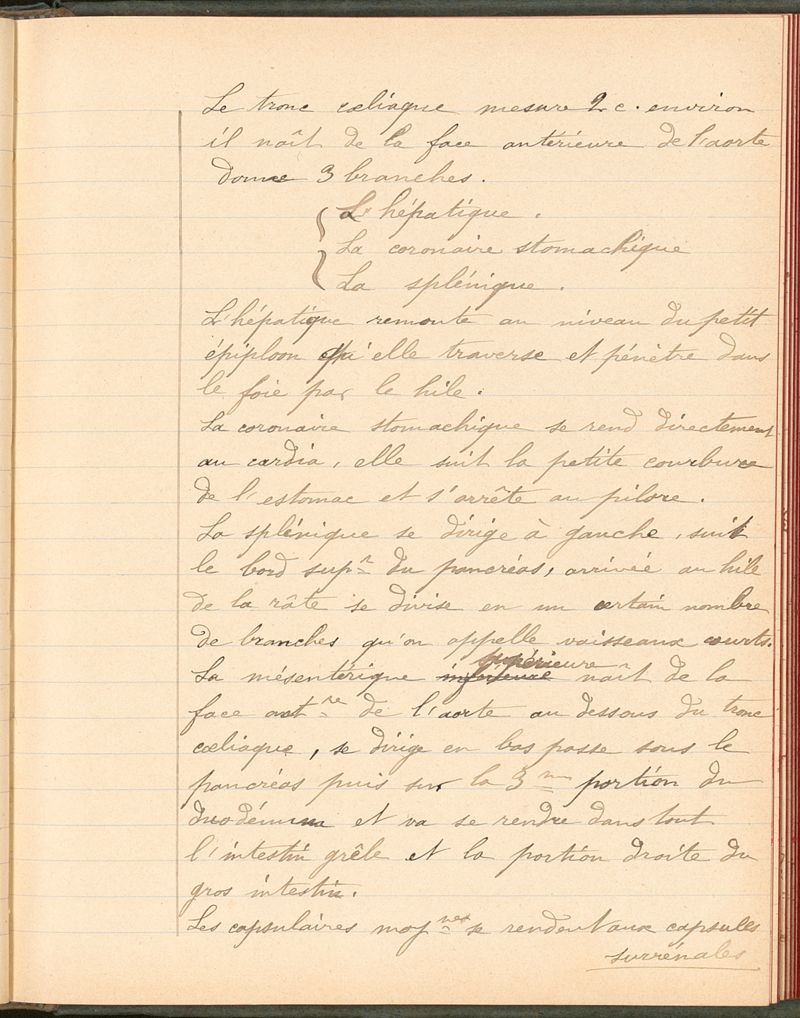 Le tronc cœliaque mesure 2 c. environ
il naît de la face antérieure de l'aorte
donne 3 branches.
L'hépatique.
La coronaire stomachique
La splénique.
L'hépatique remonte au niveau du petit
épiploon qu'elle traverse et pénètre dans
le foie par le hile.
La coronaire stomachique se rend directement
au cardia, elle suit la petite courbure
de l'estomac et s'arrête au pilore.
La splénique se dirige à gauche, suit
le bord supr du pancréas, arrivée au hile
de la râte se divise en un certain nombre
de branches qu'on appelle vaisseaux courts.
La mésentérique inférieure supérieure naît de la
face antre de l'aorte au dessous du tronc
cœliaque, se dirige en bas passe sous le
pancréas puis sur la 3m portion du
duodénum et va se rendre dans tout
l'intestin grêle et la portion droite du
gros intestin.
Les capsulaires moynes se rendent aux capsules
surrénales